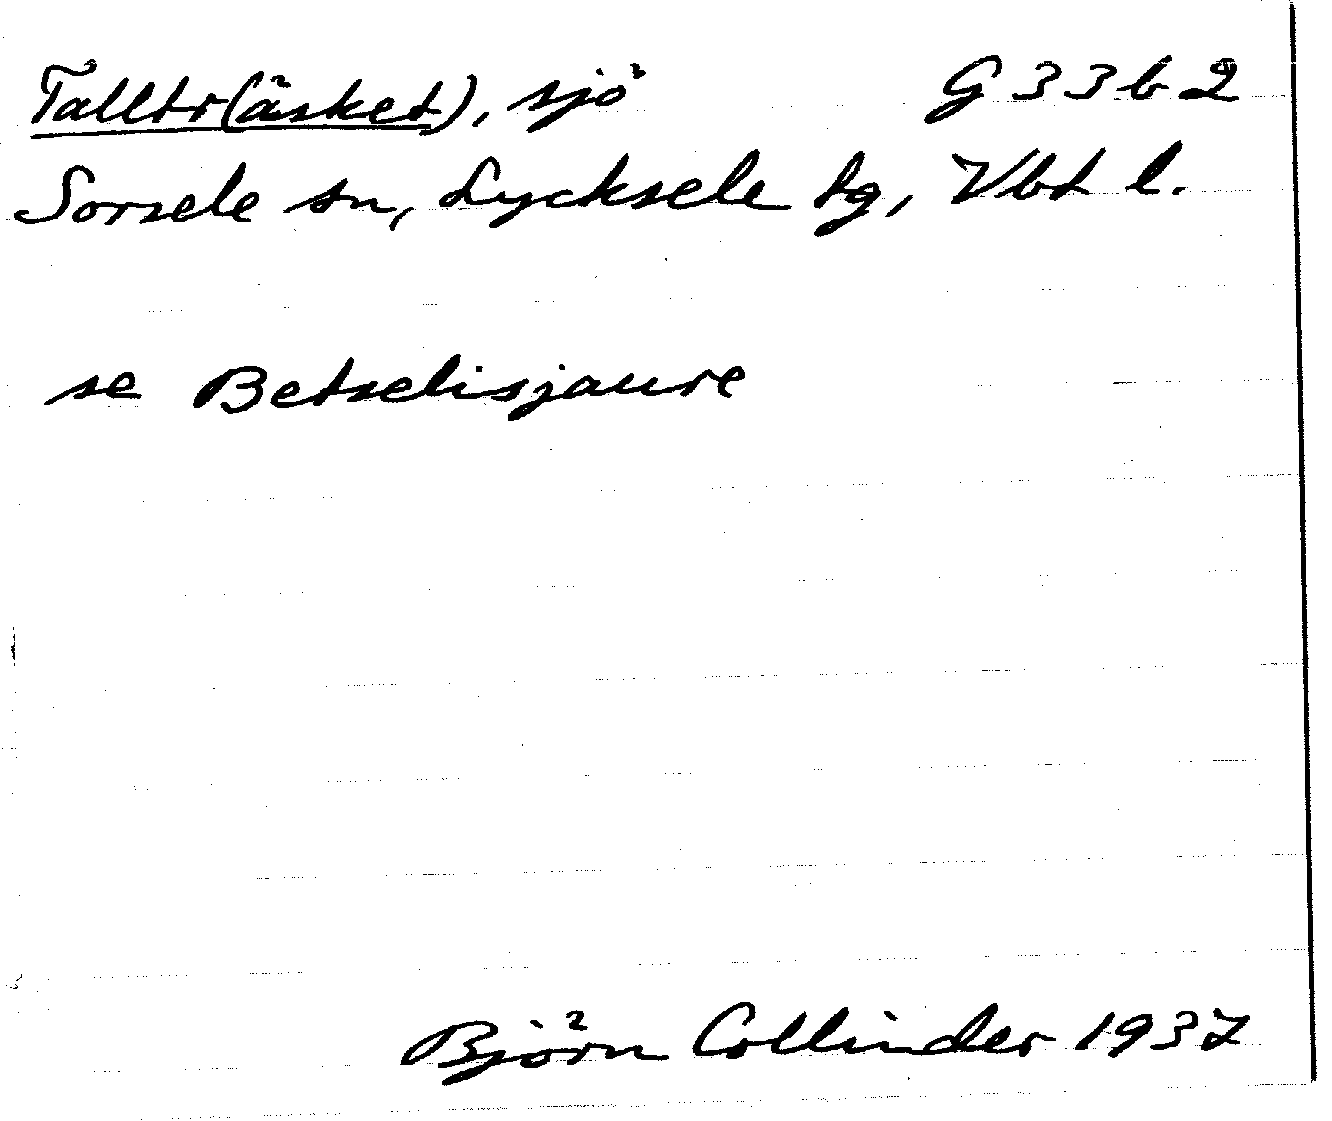 Talltr(äsket), sjö G 33 b 2
Sorsele sn, Lycksele tg, Vbt l.
se Betselisjaure
Björn Collinder 1937